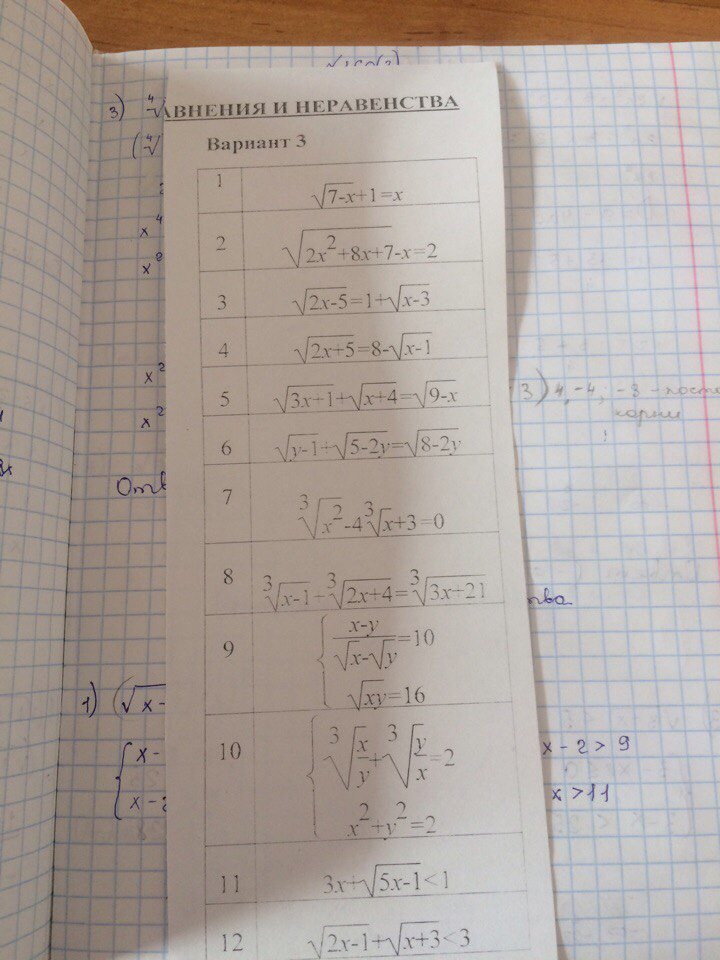 3) ⁴√
АВНЕНИЯ И НЕРАВЕНСТВА
(⁴√
Вариант 3
1 √(7-x)+1=x
2 √(2x²+8x+7)-x=2
3 √(2x-5)=1+√(x-3)
4 √(2x+5)=8-√(x-1)
5 √(3x+1)+√(x+4)=√(9-x)
6 √(y-1)+√(5-2y)=√(8-2y)
7 ³√(x²)-4³√x+3=0
8 ³√(x-1)+³√(2x+4)=³√(3x+21)
9 { (x-y)/(√x-√y)=10
√(xy)=16
10 { ³√(x/y)+³√(y/x)=2
x²+y²=2
11 3x+√(5x-1)<1
12 √(2x-1)+√(x+3)<3
x⁴
x²
x²
3) 4, -4; -3 - посто
корни
Отв
1) (√x-
{ x-
x-2
x-2>9
x>11